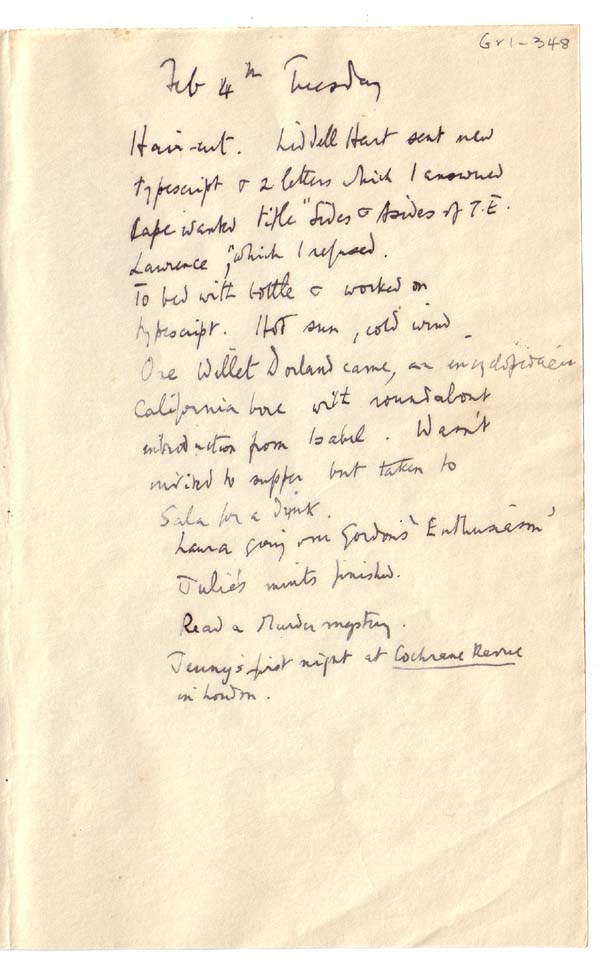 Gr1-348
Feb 4th Tuesday
Hair-cut. Liddell Hart sent new
typescript & 2 letters which I answered
Cape wanted title "Sides & Asides of T.E.
Lawrence", which I refused.
To bed with bottle & worked on
typescript. Hot sun, cold wind
One Willet Dorland came, an encyclopedia
California bore with roundabout
introduction from Isabel. Wasn't
invited to supper but taken to
Sala for a drink.
Laura going over Gordon's 'Enthusiasm'
Julie's mints finished.
Read a Murder mystery.
Jenny's first night at Cochrane Revue
in London.